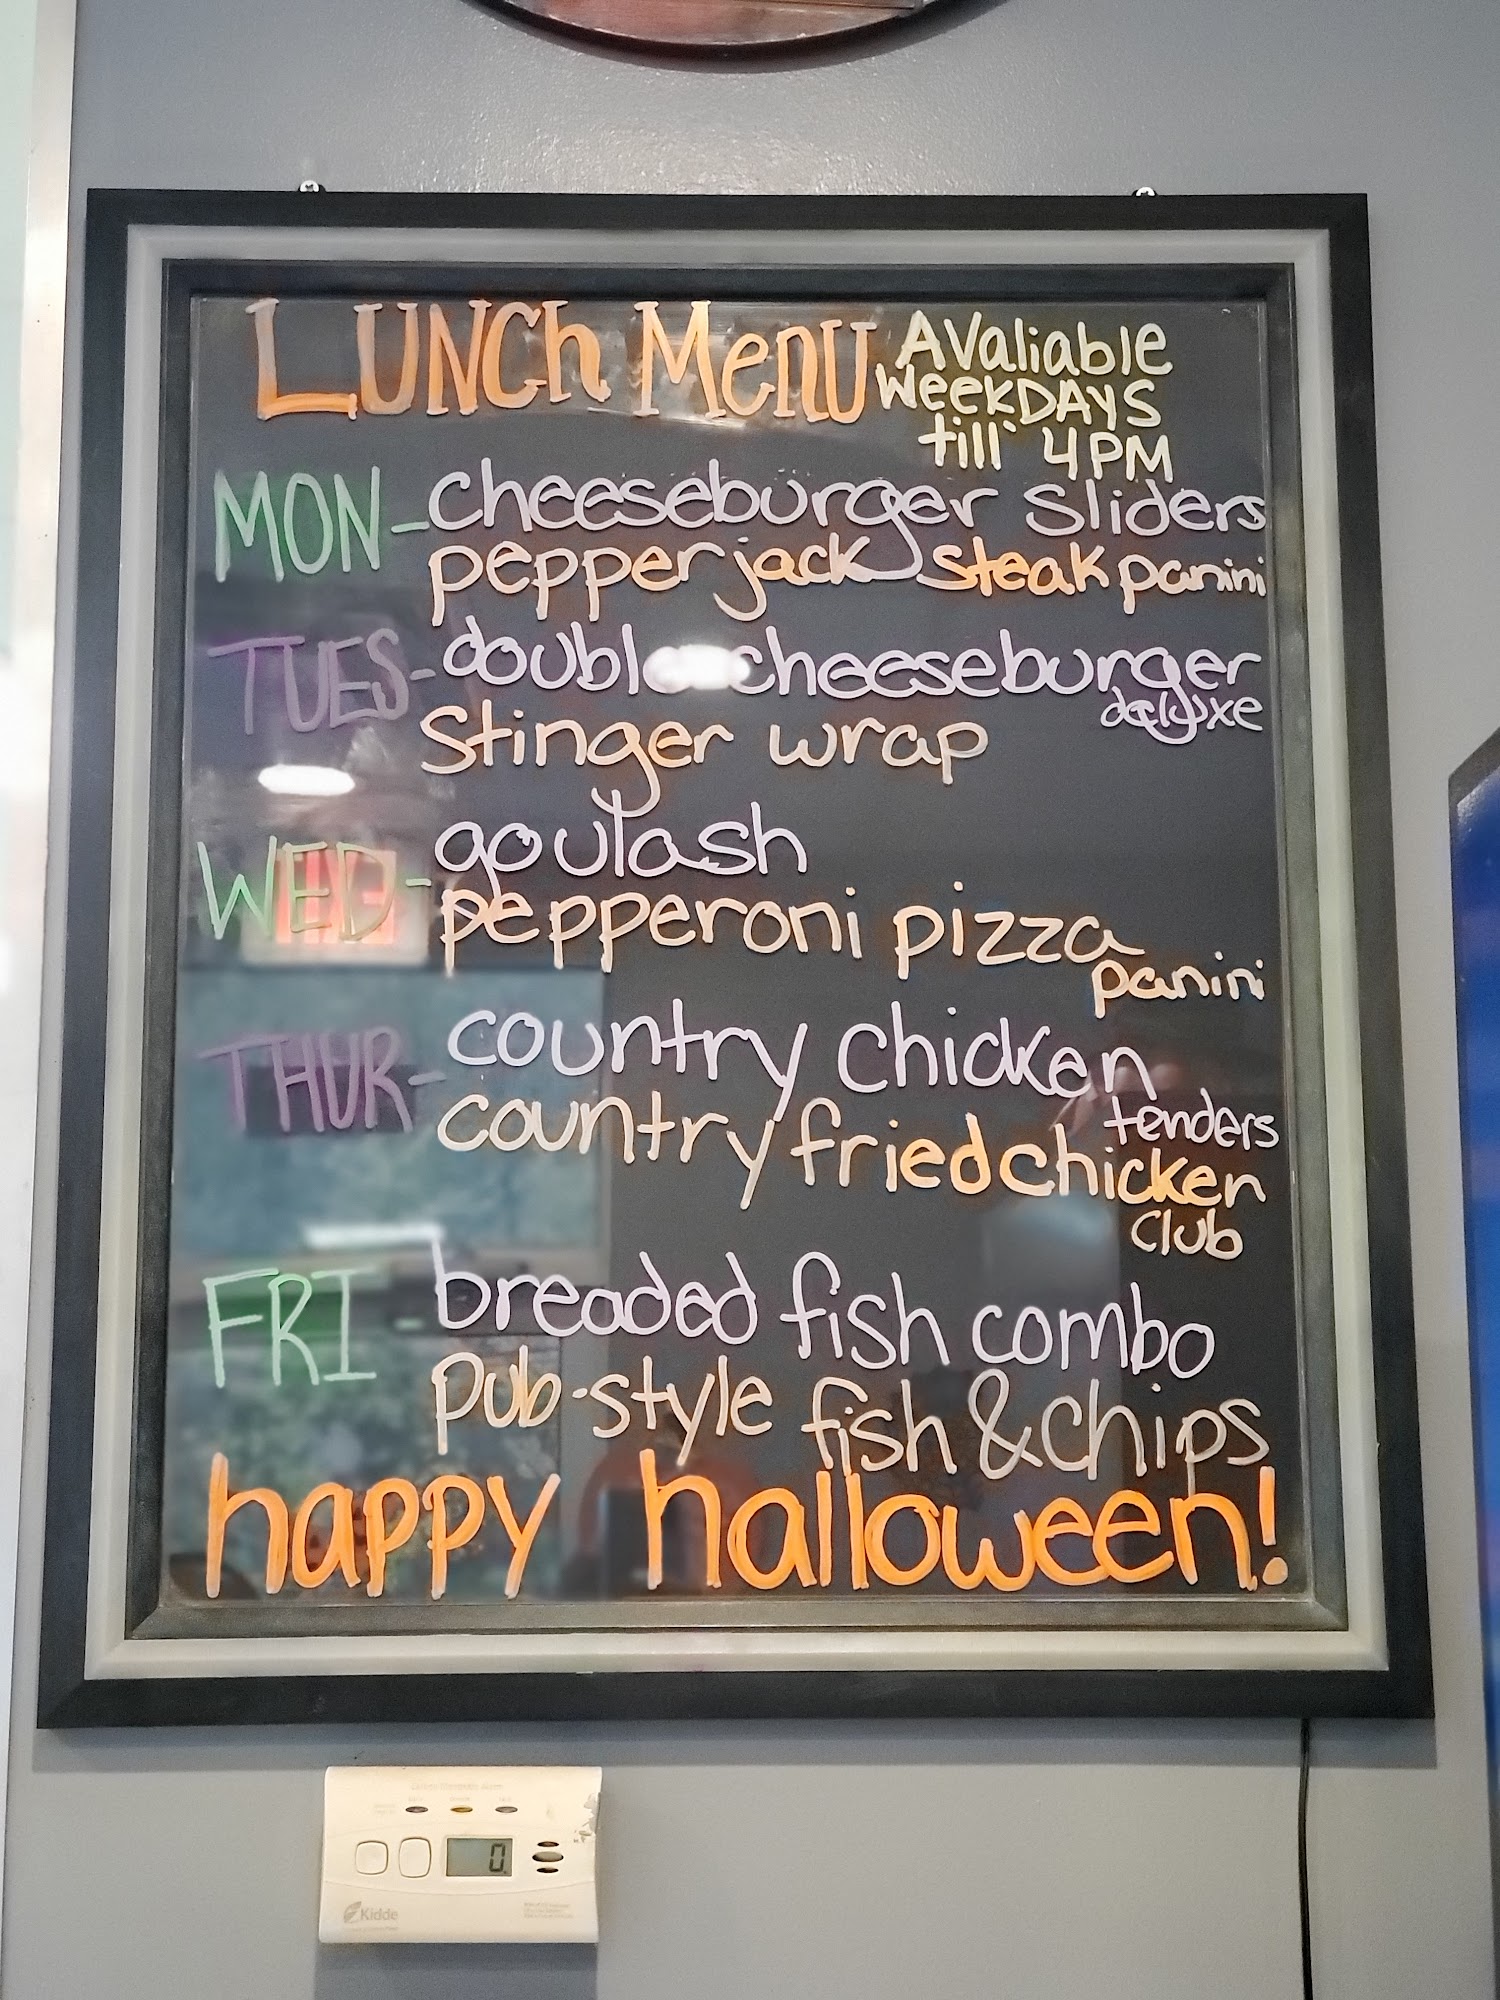 LUNCh MenU
AValiable
WeekDAYS
till' 4PM
MON- cheeseburger sliders
pepperjack steak panini
TUES- double cheeseburger
deluxe
Stinger wrap
WED- goulash
pepperoni pizza
panini
THUR- country chicken
tenders
country fried chicken
club
FRI breaded fish combo
pub-style fish & chips
happy halloween!
0
Kidde